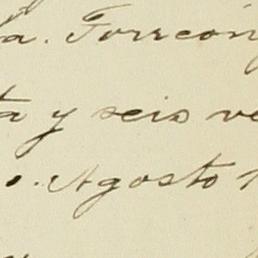 a. Torreón
ta y seis ve
o. Agosto 1